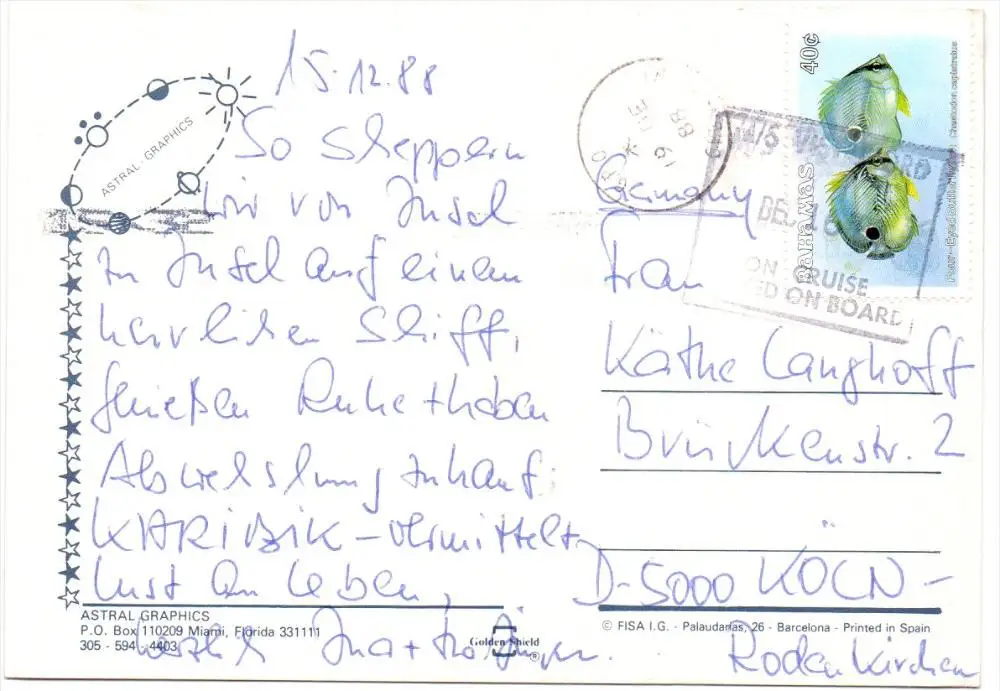 15.12.88
ASTRAL-GRAPHICS
So scheppern
wir von Insel
zu Insel auf einem
herrlichen Schiff,
genießen Ruhe + haben
Abwechslung zuhauf.
KARIBIK - vermittelt
Lust am Leben,
Ina +
ASTRAL GRAPHICS
P.O. Box 110209 Miami, Florida 331111
305 - 594 - 4403
Golden Shield
®
40¢
BAHAMAS
Four-Eyed Butterflyfish Chaetodon capistratus
88
M/S
DEC
ON CRUISE
ED ON BOARD
Germany
Frau
Käthe Langhoff
Brückenstr. 2
D-5000 KÖLN -
Rodenkirchen
© FISA I.G. - Palaudarias, 26 - Barcelona - Printed in Spain